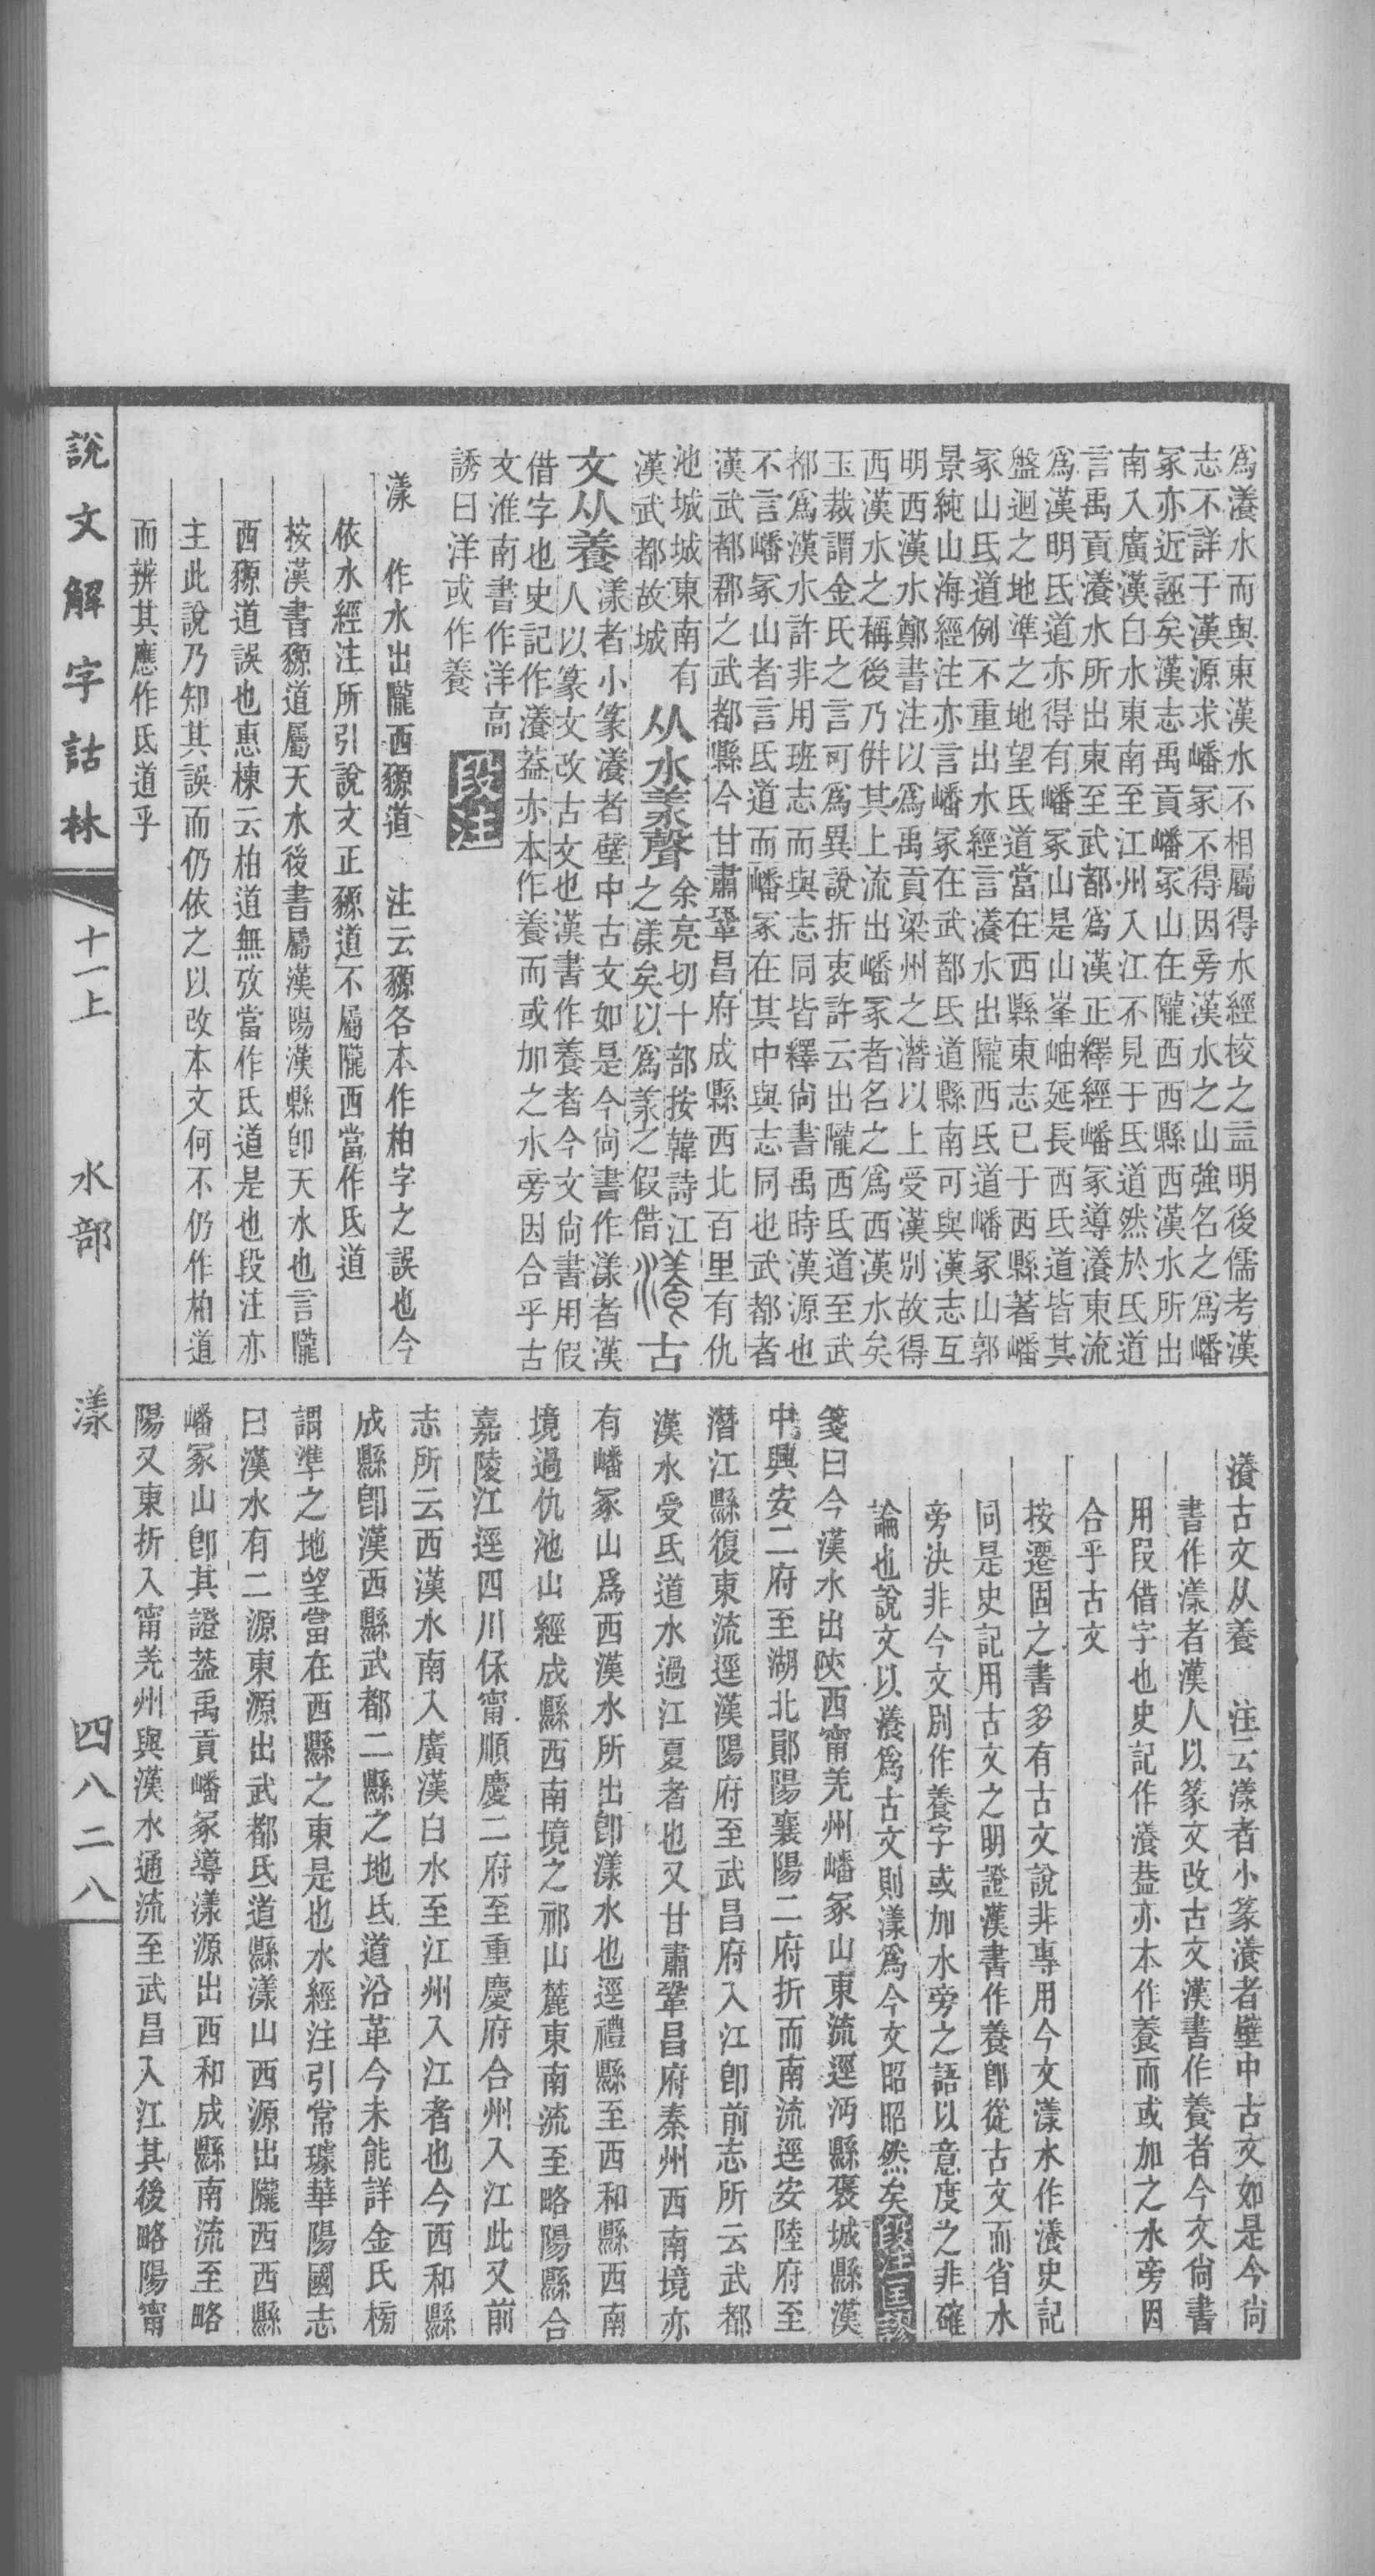 爲瀁水而與東漢水不相屬得水經校之益明後儒考漢
志不詳于漢源求嶓冢不得因旁漢水之山強名之爲嶓
冢亦近誣矣漢志禹貢嶓冢山在隴西西縣西漢水所出
南入廣漢白水東南至江州入江不見于氐道然於氐道
言禹貢瀁水所出東至武都爲漢正釋經嶓冢導瀁東流
爲漢明氐道亦得有嶓冢山是山峯岫延長西氐道皆其
盤迴之地準之地望氐道當在西縣東志已于西縣著嶓
冢山氐道例不重出水經言瀁水出隴西氐道嶓冢山郭
景純山海經注亦言嶓冢在武都氐道縣南可與漢志互
明西漢水鄭書注以爲禹貢梁州之潛以上受漢別故得
西漢水之稱後乃併其上流出嶓冢者名之爲西漢水矣
玉裁謂金氏之言可爲異說折衷許云出隴西氐道至武
都爲漢水許非用班志而與志同皆釋尙書禹時漢源也
不言嶓冢山者言氐道而嶓冢在其中與志同也武都者
漢武都郡之武都縣今甘肅鞏昌府成縣西北百里有仇
池城城東南有
漢武都故城
从水羕聲
余亮切十部按韓詩江
之漾矣以爲羕之假借
古
文从養
漾者小篆瀁者壁中古文如是今尙書作漾者漢
人以篆文改古文也漢書作養者今文尙書用假
借字也史記作瀁葢亦本作養而或加之水旁因合乎古
文淮南書作洋高
誘曰洋或作養
段注
漾　作水出隴西豲道　注云豲各本作柏字之誤也今
依水經注所引說文正豲道不屬隴西當作氐道
按漢書豲道屬天水後書屬漢陽漢縣卽天水也言隴
西豲道誤也惠棟云柏道無攷當作氐道是也段注亦
主此說乃知其誤而仍依之以改本文何不仍作柏道
而辨其應作氐道乎
瀁古文从養　注云漾者小篆瀁者壁中古文如是今尙
書作漾者漢人以篆文改古文漢書作養者今文尙書
用叚借字也史記作瀁葢亦本作養而或加之水旁因
合乎古文
按遷固之書多有古文說非專用今文漾水作瀁史記
同是史記用古文之明證漢書作養卽從古文而省水
旁決非今文別作養字或加水旁之語以意度之非確
論也說文以瀁爲古文則漾爲今文昭昭然矣段注匡謬
箋曰今漢水出陝西甯羌州嶓冢山東流逕沔縣褒城縣漢
中興安二府至湖北鄖陽襄陽二府折而南流逕安陸府至
潛江縣復東流逕漢陽府至武昌府入江卽前志所云武都
漢水受氐道水過江夏者也又甘肅鞏昌府秦州西南境亦
有嶓冢山爲西漢水所出卽漾水也逕禮縣至西和縣西南
境過仇池山經成縣西南境之祁山麓東南流至略陽縣合
嘉陵江逕四川保甯順慶二府至重慶府合州入江此又前
志所云西漢水南入廣漢白水至江州入江者也今西和縣
成縣卽漢西縣武都二縣之地氐道沿革今未能詳金氏榜
謂準之地望當在西縣之東是也水經注引常璩華陽國志
曰漢水有二源東源出武都氐道縣漾山西源出隴西西縣
嶓冢山卽其證葢禹貢嶓冢導漾源出西和成縣南流至略
陽又東折入甯羌州與漢水通流至武昌入江其後略陽甯
說文解字詁林
十一上　水部　漾
四八二八